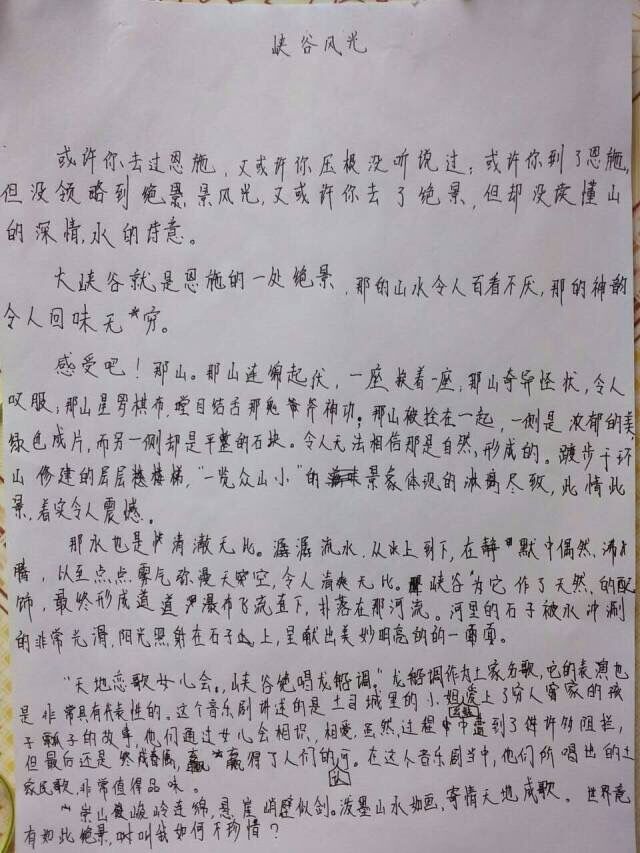 峡谷风光
或许你去过恩施,又或许你压根没听说过;或许你到了恩施,
但没领略到绝景,景风光,又或许你去了绝景,但却没读懂山
的深情,水的诗意。
大峡谷就是恩施的一处绝景,那的山水令人百看不厌,那的神韵
令人回味无穷。
感受吧!那山。那山连绵起伏,一座挨着一座,那山奇异怪状,令人
叹服;那山星罗棋布,瞠目结舌那鬼斧神功;那山被拴在一起,一侧是浓郁的美
绿色成片,而另一侧却是平整的石块。令人无法相信那是自然,形成的。踱步于环
山修建的层层楼梯,“一览众山小”的景象体现的淋漓尽致,此情此
景,着实令人震憾。
那水也是清澈无比。潺潺流水,从上到下,在静默中偶然沸
腾,以至点点雾气弥漫天空,令人清爽无比。峡谷为它作了天然的配
饰,最终形成道道瀑布飞流直下,扑落在那河流。河里的石子被水冲涮
的非常光滑,阳光照射在石子上,呈献出美妙明亮的的一面。
“天地恋歌女儿会,峡谷绝唱龙船调。”龙船调作为土家名歌,它的表演也
是非常具有代表性的。这个音乐剧讲述的是土司城里的小姐爱上了穷人客家的孩
子瓢子的故事,他们通过女儿会相识,相爱,虽然,过程中遭到了件许多阻拦,
但最后还是终成眷属,赢得了人们的认可。在这个音乐剧当中,他们所唱出的土
家民歌,非常值得品味。
崇山峻岭连绵,悬崖峭壁似剑。泼墨山水如画,寄情天地成歌。世界竟
有如此绝景,叫我如何不珍惜?